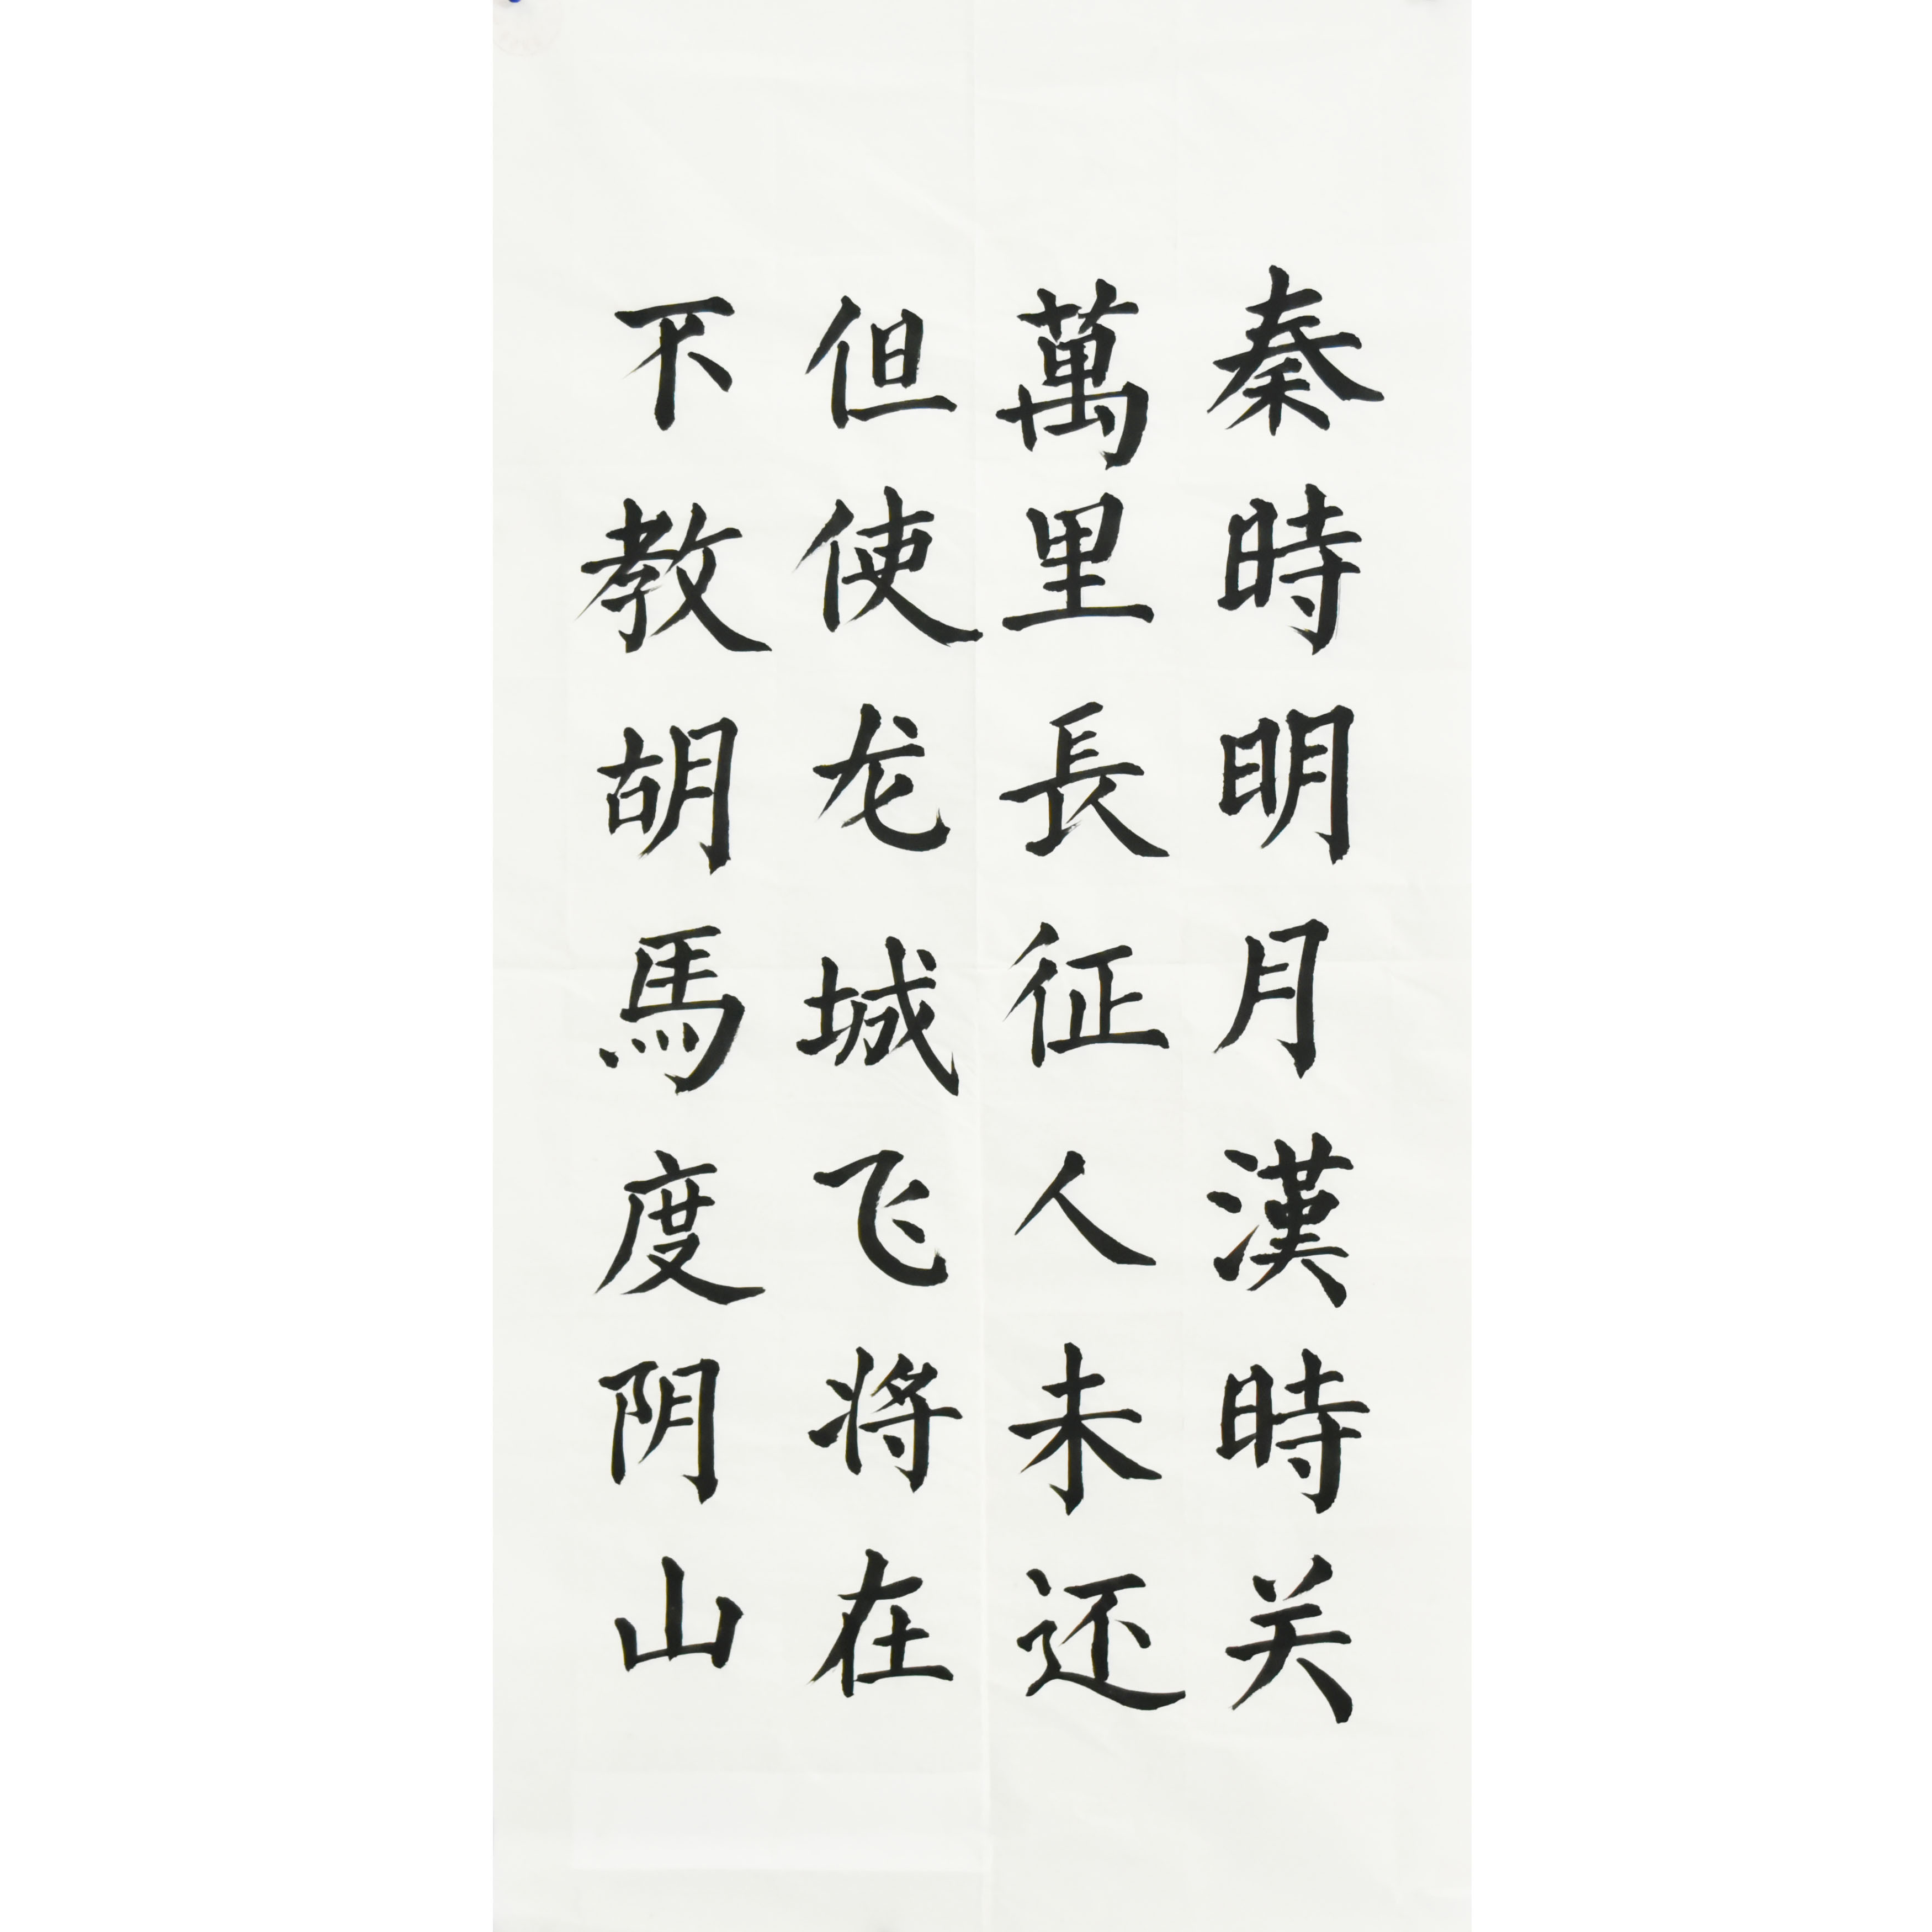 秦時明月漢時关
萬里長征人未还
但使龙城飞将在
不教胡馬度阴山